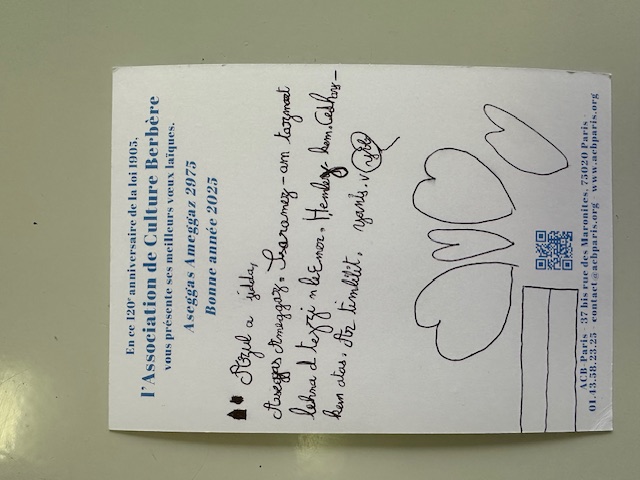 En ce 120e anniversaire de la loi 1905,
l'Association de Culture Berbère
vous présente ses meilleurs vœux laïques.
Aseggas Ameggaz 2975
Bonne année 2025
Azul a jedda,
Aseggas Ameggaz. am tazmert
lehna d teɣzi n leɛmer. Hemleɣ kem. Cedhaɣ-
kem atas. Ar timlilit. yanis.
ACB Paris · 37 bis rue des Maronites, 75020 Paris ·
01.43.58.23.25 · contact@acbparis.org www.acbparis.org